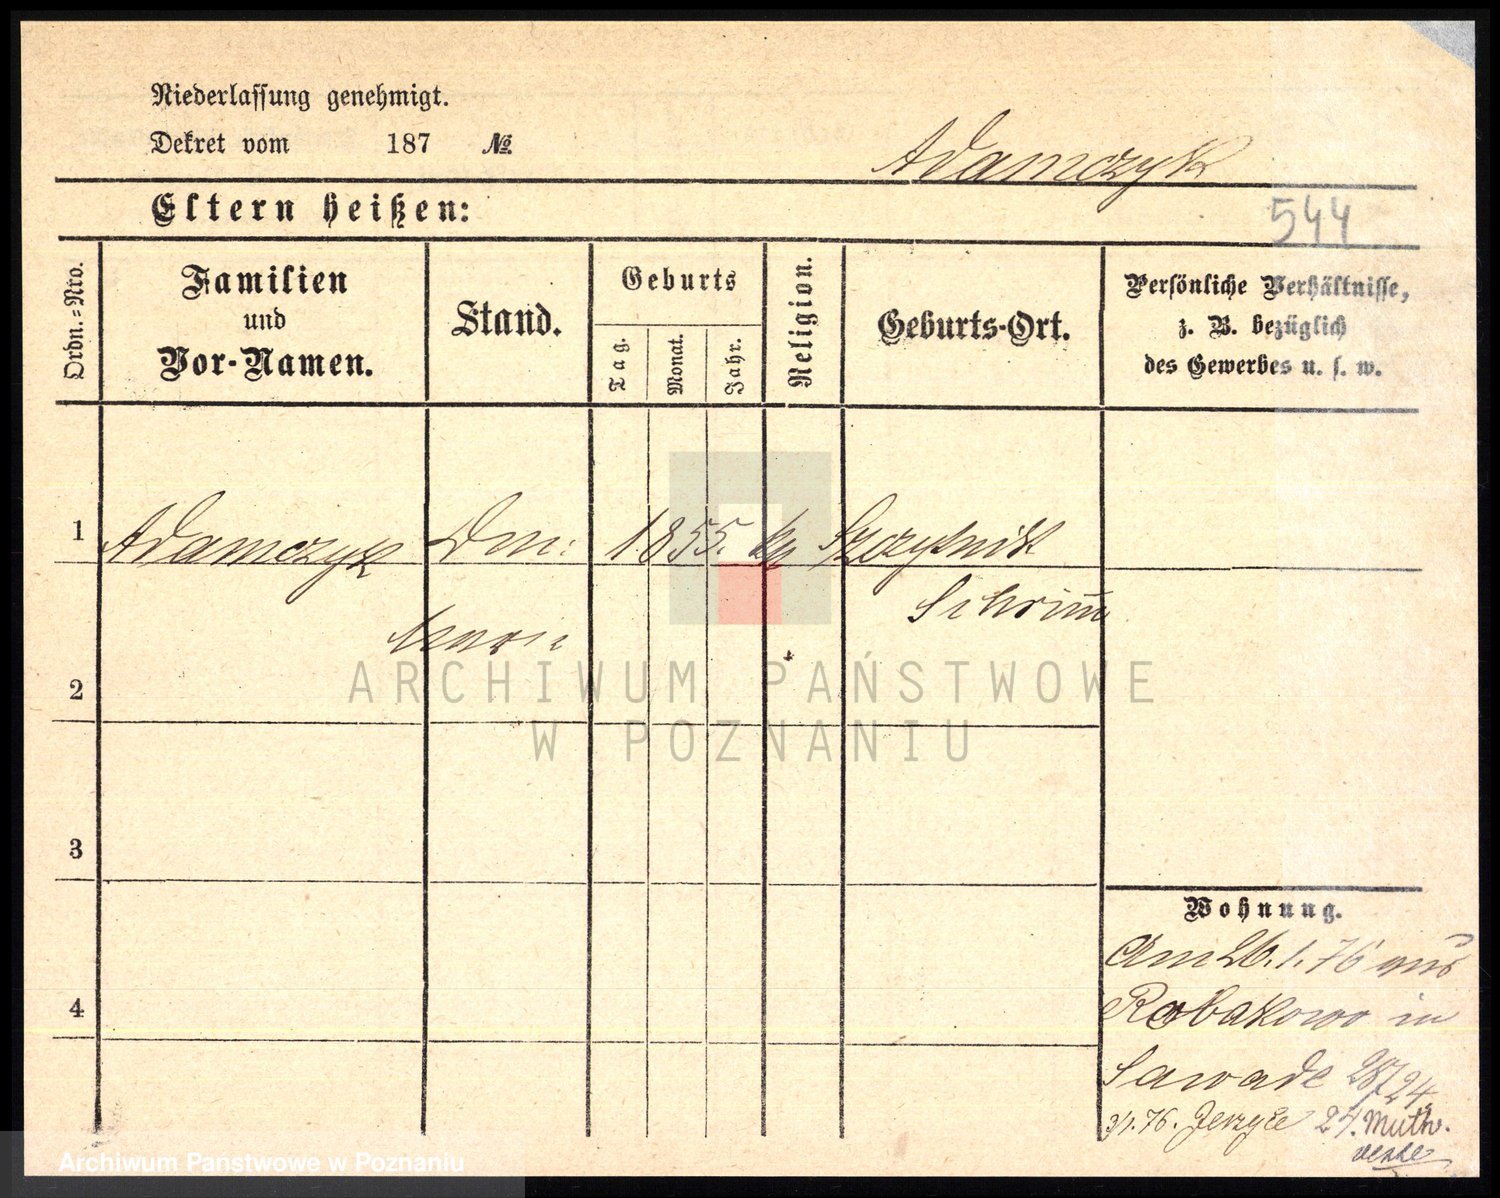 Niederlassung genehmigt.
Dekret vom 187 №
Adamczyk
Eltern heißen:
544
Ordn.=Nro.
Familien
und
Vor-Namen.
Stand.
Geburts
Tag.
Monat.
Jahr.
Religion.
Geburts-Ort.
Persönliche Verhältnisse,
z. B. bezüglich
des Gewerbes u. s. w.
1 Adamczyk 1855.
Schrim̄
2
ARCHIWUM PAŃSTWOWE
W POZNANIU
3
Wohnung.
Am 26.1.76 aus
4 Robakowo in
Sawade 28/24
3/1.76. Jerzyce
Archiwum Państwowe w Poznaniu